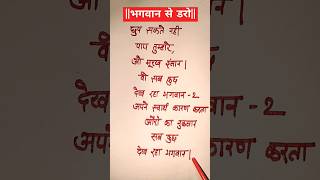 ||भगवान से डरो||
छुप सकते नही
पाप तुम्हारे,
ओ मूरख इंसान।
वो सब कुछ
देख रहा भगवान -2
अपने स्वार्थ कारण करता
औरों का नुकसान
सब कुछ
देख रहा भगवान।